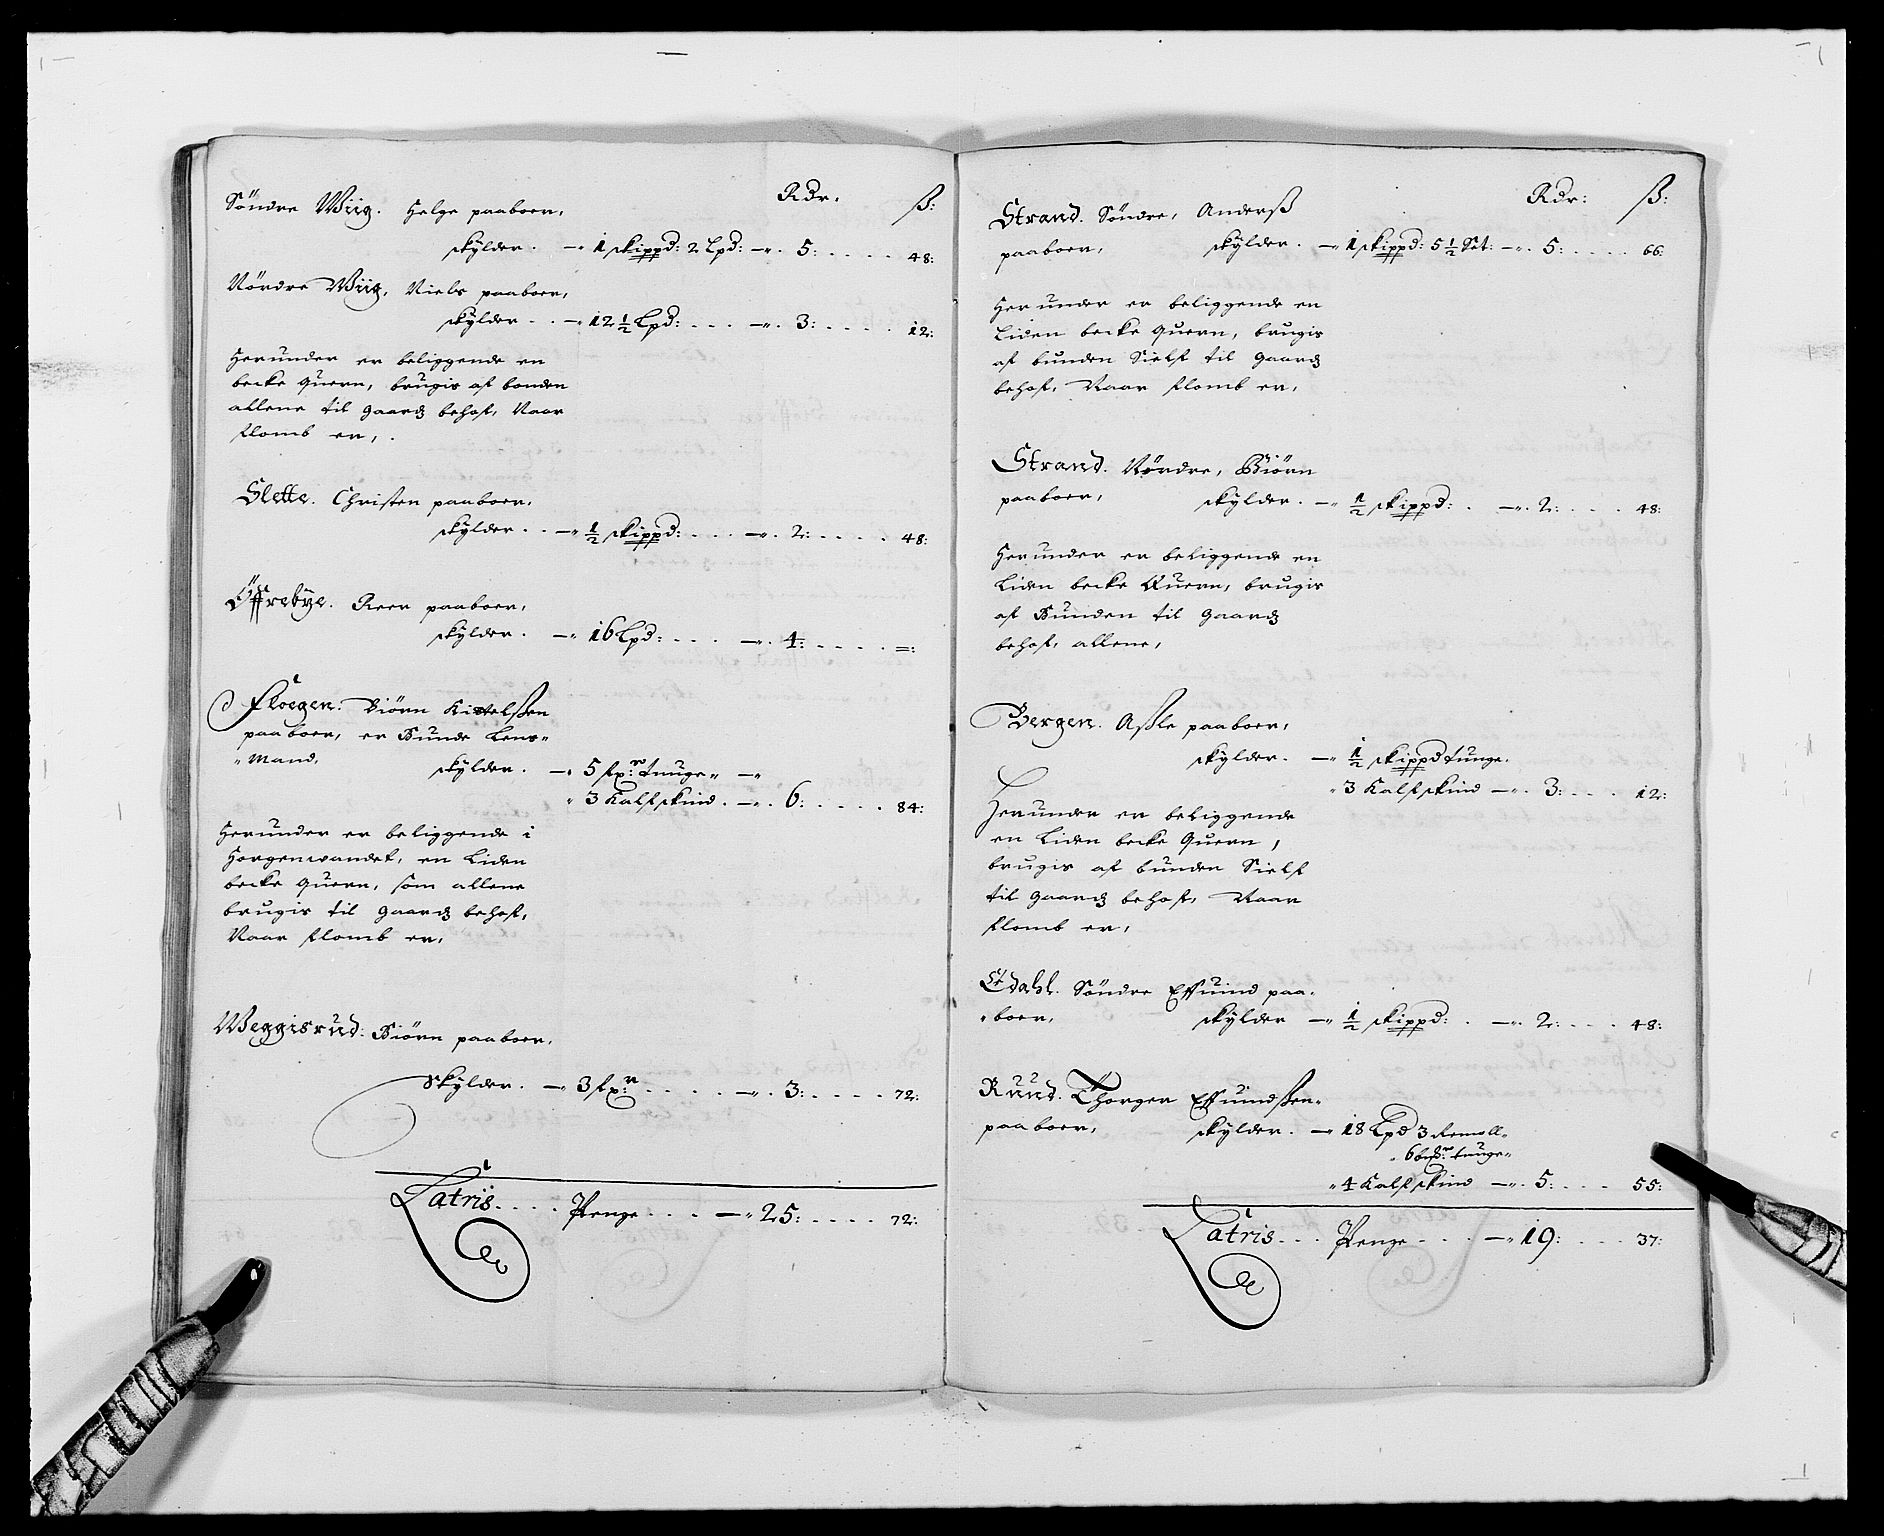 Rdr: ß:
Söndre Wiig. Helge paaboer,
skylder. — 1 skippd: 2 Lpd: — 5: . . . . 48:
Nördre Wiig, Niels paaboer,
skylder . . — 12½ Lpd: . . . — 3: . . . . 12:
Herunder er beliggende en
becke quern, brugis af bonden
allene til gaardz behof, Naar
flomb er, .
Slette. Christen paaboer,
skylder . . — ½ skippd: . . . — 2: . . . . 48:
Öffrebÿe. Reer paaboer,
skylder. — 16 Lpd: . . . — 4: . . . . =:
Floegen: Biörn Kittelßen
paaboer, er Bunde Lens-
"Mand, skylder. — 5 fxr: tunge" —
" 3 Kalfskind . — 6: . . . . 84:
Herunder er beliggende i
Horgenwandet, en Liden
becke quern, som allene
brugis til gaardz behof,
Naar flomb er,
Weggisrud: Biörn paaboer,
Skylder. — 3 fxr: . . . . — 3: . . . . 72:
Latris . . . . Penge . . . — 25: . . . . 72:
Rdr: ß:
Strand. Söndre, Anderß
paaboer, skylder. — 1 skippd: 5½ Set: — 5: . . . . 66:
Herunder er beliggende en
Liden becke quern, brugis
af bunden Sielf til gaardz
behof, Naar flomb er,
Strand. Nørdre, Biörn
paaboer, skylder. — ½ skippd: . — 2: . . . 48:
Herunder er beliggende en
Liden becke Quern, brugis
af Bunden til gaardz
behof, allene,
Bergen. Aßle paaboer,
skylder. — ½ skippd tunge.
" 3 Kalfskind — 3: . . . 12:
Herunder er beliggende
en Liden becke Quern,
brugis af bunden Sielf
til gaardz behof, Naar
flomb er,
Edahl. Söndre Effuind paa-
"boer, skylder — ½ skippd: . — 2: . . . 48:
Ruud. Thorger Effuindßen"
paaboer, skylder. — 18 Lpd 3 Remoll"
" 6 tunge"
" 4 Kalfskind — 5: . . . 55:
Latris . . . Penge . . . — 19: . . . 37: